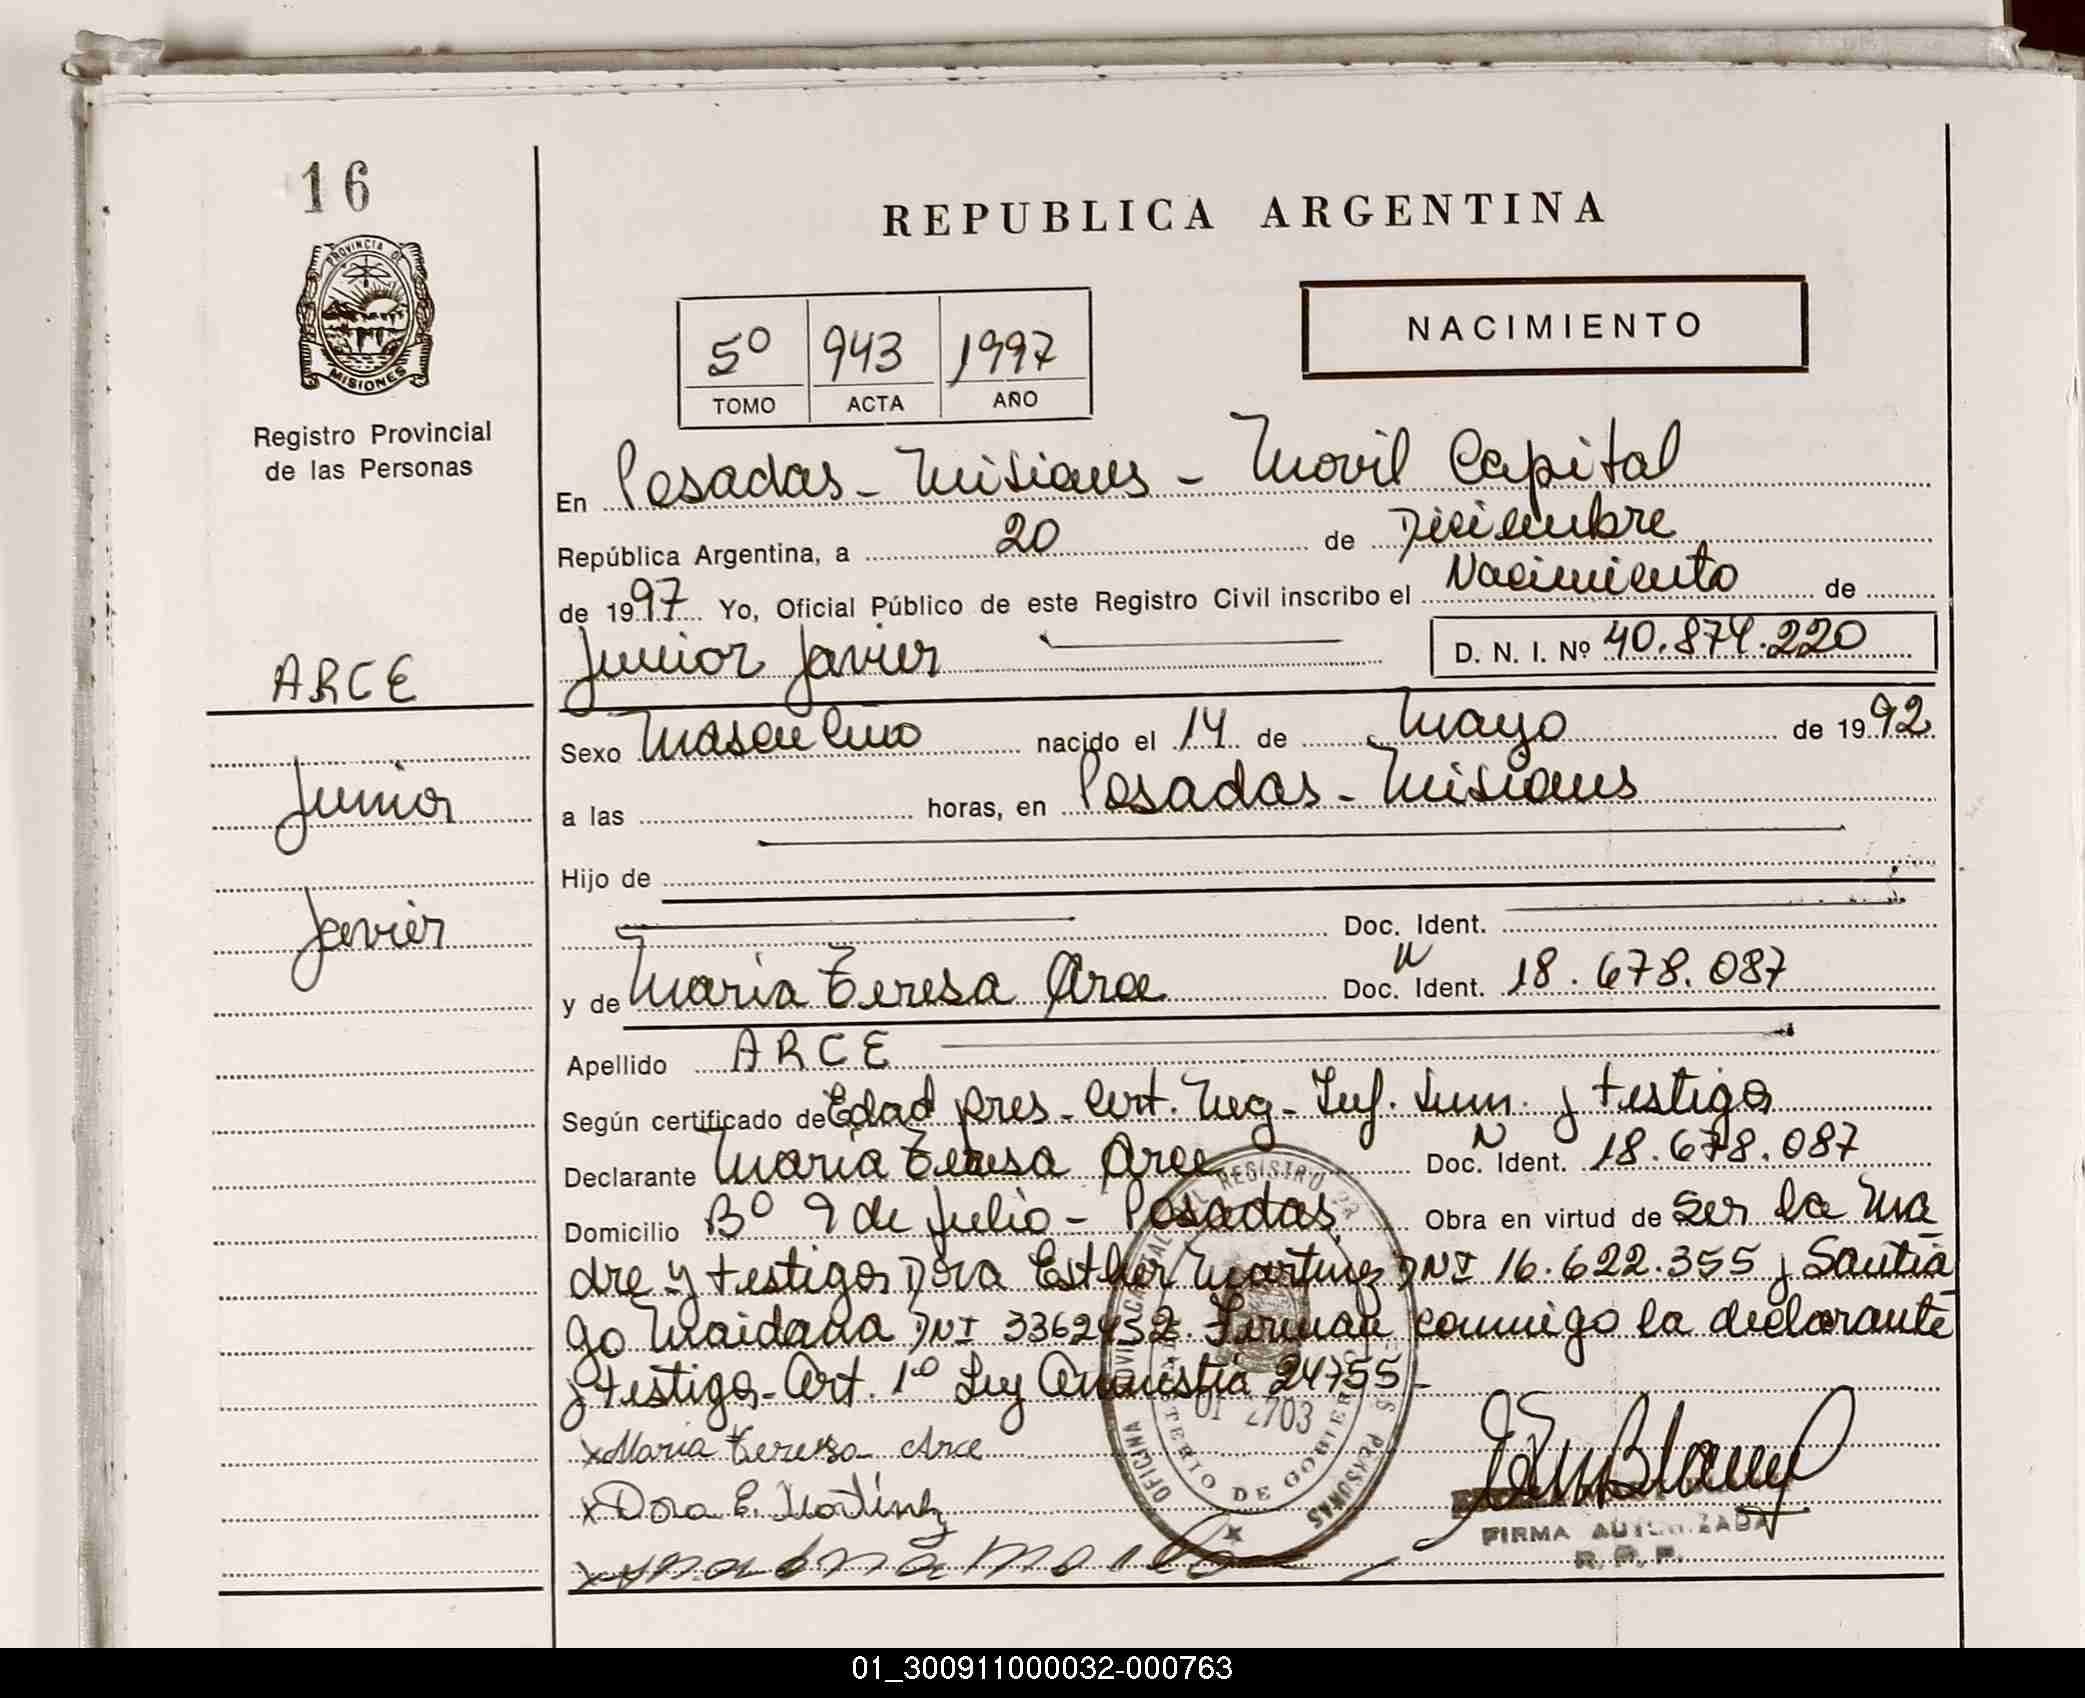 16
REPUBLICA ARGENTINA
PROVINCIA DE
MISIONES
Registro Provincial
de las Personas
5º 943 1997
TOMO ACTA AÑO
NACIMIENTO
En Posadas - Misiones - Movil Capital
República Argentina, a 20 de Diciembre
de 1997 Yo, Oficial Público de este Registro Civil inscribo el Nacimiento de
Junior Javier D. N. I. Nº 40.874.220
ARCE
Junior
Javier
Sexo Masculino nacido el 14 de Mayo de 1992
a las horas, en Posadas - Misiones
Hijo de
Doc. Ident.
y de Maria Teresa Arce Doc. N Ident. 18.678.087
Apellido ARCE
Según certificado de Edad pres - Cert. Neg - Inf. Sum. y testigos
Declarante Maria Teresa Arce Doc. N Ident. 18.678.087
Domicilio Bº 9 de Julio - Posadas Obra en virtud de ser la ma
dre y testigos Dora Esther Martinez DNI 16.622.355 y Santia
go Maidana DNI 3362452. Firman conmigo la declarante
y testigos - Art. 1º Ley Amnistia 24755 -
x Maria Teresa Arce
x Dora E. Martínez
OFICINA
REGISTRO
DE GOBIERNO
PERSONAS
FIRMA AUTORIZADA
R. P. P.
01_300911000032-000763